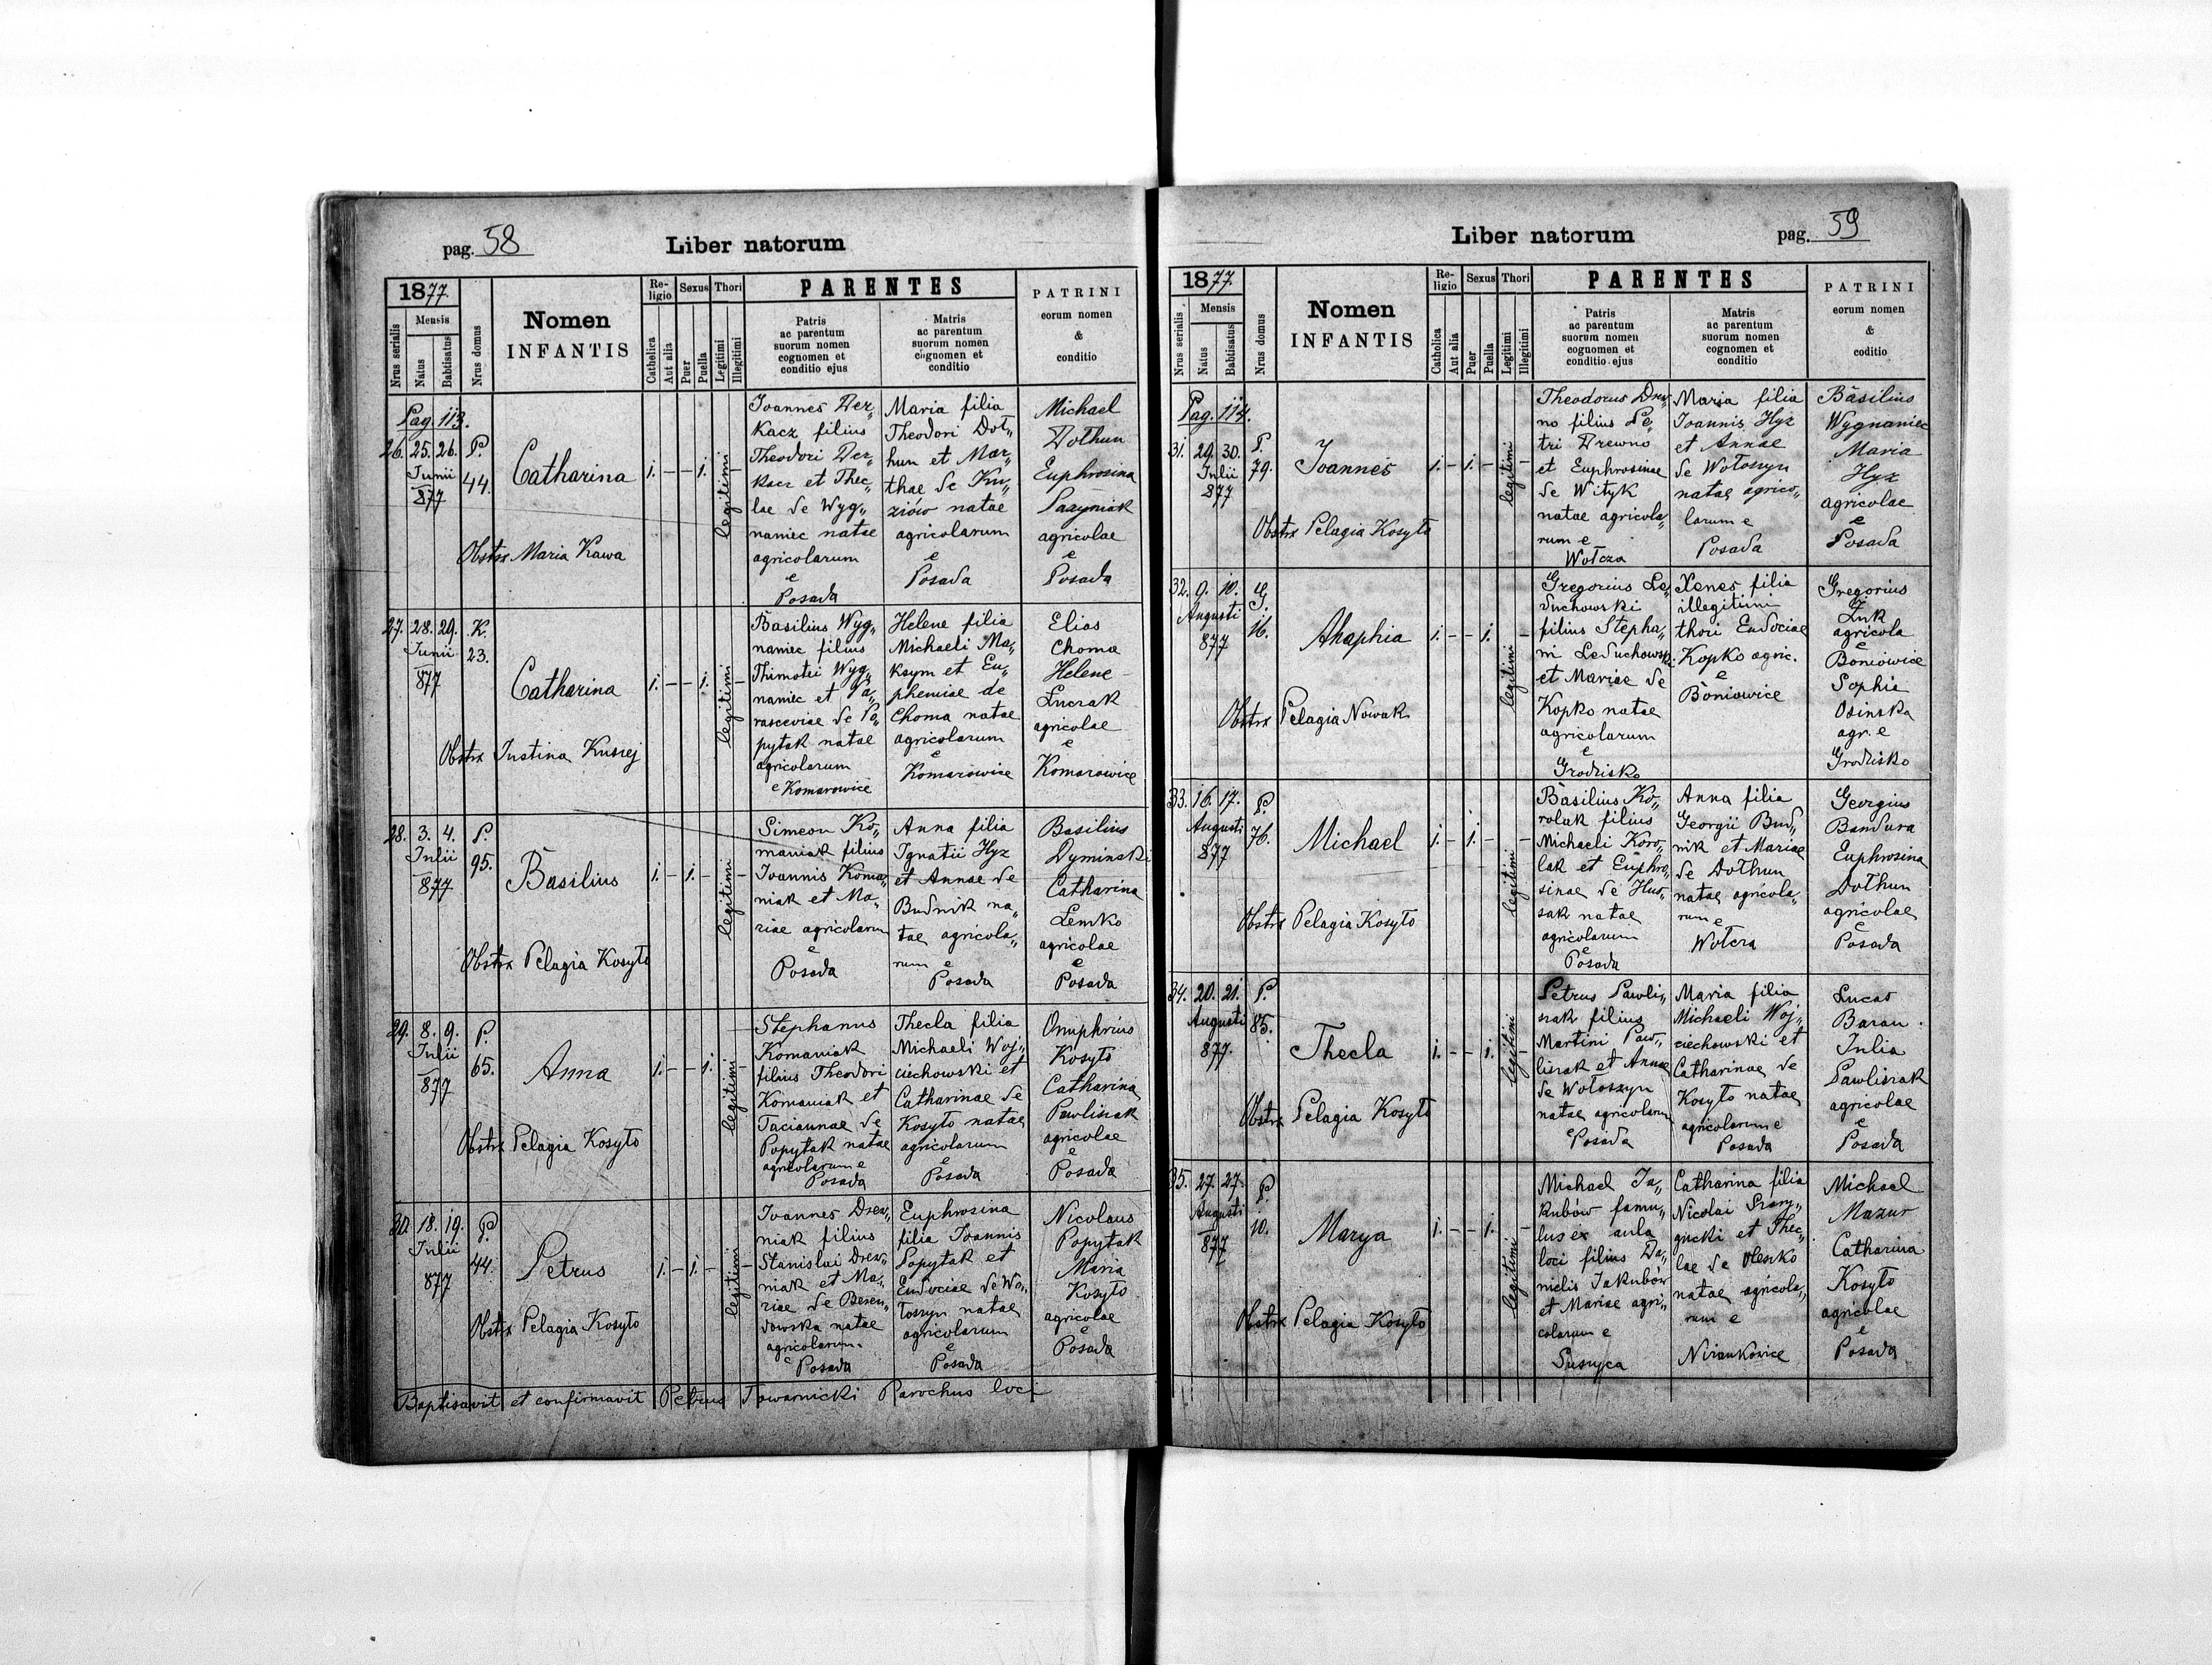 pag. 58 Liber natorum
1877.
Nrus serialis
Mensis
Natus
Babtisatus
Nrus domus
Nomen
INFANTIS
Religio
Catholica
Aut alia
Sexus
Puer
Puella
Thori
Legitimi
Illegitimi
PARENTES
Patris
ac parentum
suorum nomen
cognomen et
conditio ejus
Matris
ac parentum
suorum nomen
cognomen et
conditio
PATRINI
eorum nomen
&
conditio
Pag. 113.
26. 25. 26. P.
Junii 44.
877
Catharina
1. – – 1. legitimi –
Obstrx Maria Kawa
Joannes Der„
kacz filius
Theodori Der„
kacz et Thec„
lae de Wyg„
naniec natae
agricolarum
e
Posada
Maria filia
Theodori Dot„
hun et Mar„
thae de Ku„
ziów natae
agricolarum
e
Posada
Michael
Dothun
Euphrosina
agricolae
e
Posada
27. 28. 29. K.
Junii 23.
877
Catharina
1. – – 1. legitimi –
Obstrx Justina Kusiej
Basilius Wyg„
naniec filius
Thimotei Wyg„
naniec et Pa„
rasceviae de Po„
pytak natae
agricolarum
e Komarowice
Helene filia
Michaeli Ma„
ksym et Eu„
phemiae de
Choma natae
agricolarum
e
Komarowice
Elias
Choma
Helene
Luczak
agricolae
e
Komarowice
28. 3. 4. P.
Julii 95.
877
Basilius
1. – 1. – legitimi –
Obstrx Pelagia Kosyło
Simeon Ko„
maniak filius
Joannis Koma„
niak et Ma„
riae agricolarum
e
Posada
Anna filia
Ignatii Hyz
et Annae de
Budnik na„
tae agricola„
rum e
Posada
Basilius
Dyminski
Catharina
Lemko
agricolae
e
Posada
29. 8. 9. P.
Julii 65.
877
Anna
1. – – 1. legitimi –
Obstrx Pelagia Kosyło
Stephanus
Komaniak
filius Theodori
Komaniak et
Taciannae de
Popytak natae
agricolarum e
Posada
Thecla filia
Michaeli Woj„
ciechowski et
Catharinae de
Kosyło natae
agricolarum
e
Posada
Onuphrius
Kosyło
Catharina
Pawliszak
agricolae
e
Posada
30. 18. 19. P.
Julii 44.
877
Petrus
1. – 1. – legitimi –
Obstrx Pelagia Kosyło
Joannes Drew„
niak filius
Stanislai Drew„
niak et Ma„
riae de Beren„
dowska natae
agricolarum.
e Posada
Euphrosina
filia Joannis
Popytak et
Eudociae de Wo„
łoszyn natae
agricolarum
e
Posada
Nicolaus
Popytak
Maria
Kosyło
agricolae
e
Posada
Baptisavit et confirmavit Petrus Towarnicki Parochus loci
Liber natorum pag. 59
1877.
Nrus serialis
Mensis
Natus
Babtisatus
Nrus domus
Nomen
INFANTIS
Religio
Catholica
Aut alia
Sexus
Puer
Puella
Thori
Legitimi
Illegitimi
PARENTES
Patris
ac parentum
suorum nomen
cognomen et
conditio ejus
Matris
ac parentum
suorum nomen
cognomen et
conditio
PATRINI
eorum nomen
&
coditio
Pag. 114.
31. 29. 30. P.
Julii 79.
877
Joannes
1. – 1. – legitimi –
Obstrx Pelagia Kosyło
Theodorus Drew„
no filius Pe„
tri Drewno
et Euphrosinae
de Wityk
natae agricola„
rum e
Wołcza
Maria filia
Joannis Hyz
et Annae
de Wołoszyn
natae agrico„
larum e
Posada
Basilius
Wygnaniec
Maria
Hyz
agricolae
e
Posada
32. 9. 10. G.
Augusti 16.
877
Ahaphia
1. – – 1. legitimi –
Obstrx Pelagia Nowak
Gregorius Le„
duchowski
filius Stepha„
ni Leduchowski
et Mariae de
Kopko natae
agricolarum
e
Grodzisko
Xenes filia
illegitimi
thori Eudociae
Kopko agric.
e
Boniowice
Gregorius
Żuk
agricola
e
Boniowice
Sophia
Osinska
agr. e
Grodzisko
33. 16. 17. P.
Augusti 76.
877
Michael
1. – 1. – legitimi –
Obstrx Pelagia Kosyło
Basilius Ko„
rolak filius
Michaeli Koro„
lak et Euphro„
sinae de Hus„
sak natae
agricolarum
e
Posada
Anna filia
Georgii Bud„
nik et Mariae
de Dothun
natae agricola„
rum e
Wołcza
Georgius
Bandura
Euphrosina
Dothun
agricolae
e
Posada
34. 20. 21. P.
Augusti 85.
877.
Thecla
1. – – 1. legitimi –
Obstrx Pelagia Kosyło
Petrus Pawli„
szak filius
Martini Paw„
liszak et Annae
de Wołoszyn
natae agricolarum
e Posada
Maria filia
Michaeli Woj„
ciechowski et
Catharinae de
Kosyło natae
agricolarum e
Posada
Lucas
Baran
Julia
Pawliszak
agricolae
e
Posada
35. 27. 27. P.
Augusti 10.
877
Marya
1. – – 1. legitimi –
Obstrx Pelagia Kosyło
Michael Ja„
kubów famu„
lus ex aula
loci filius Da„
nielis Jakubów
et Mariae agri„
colarum e
Suszyca
Catharina filia
Nicolai
et Thec„
lae de Olesko
natae agricola„
rum e
Nizankowice
Michael
Mazur
Catharina
Kosyło
agricolae
e
Posada